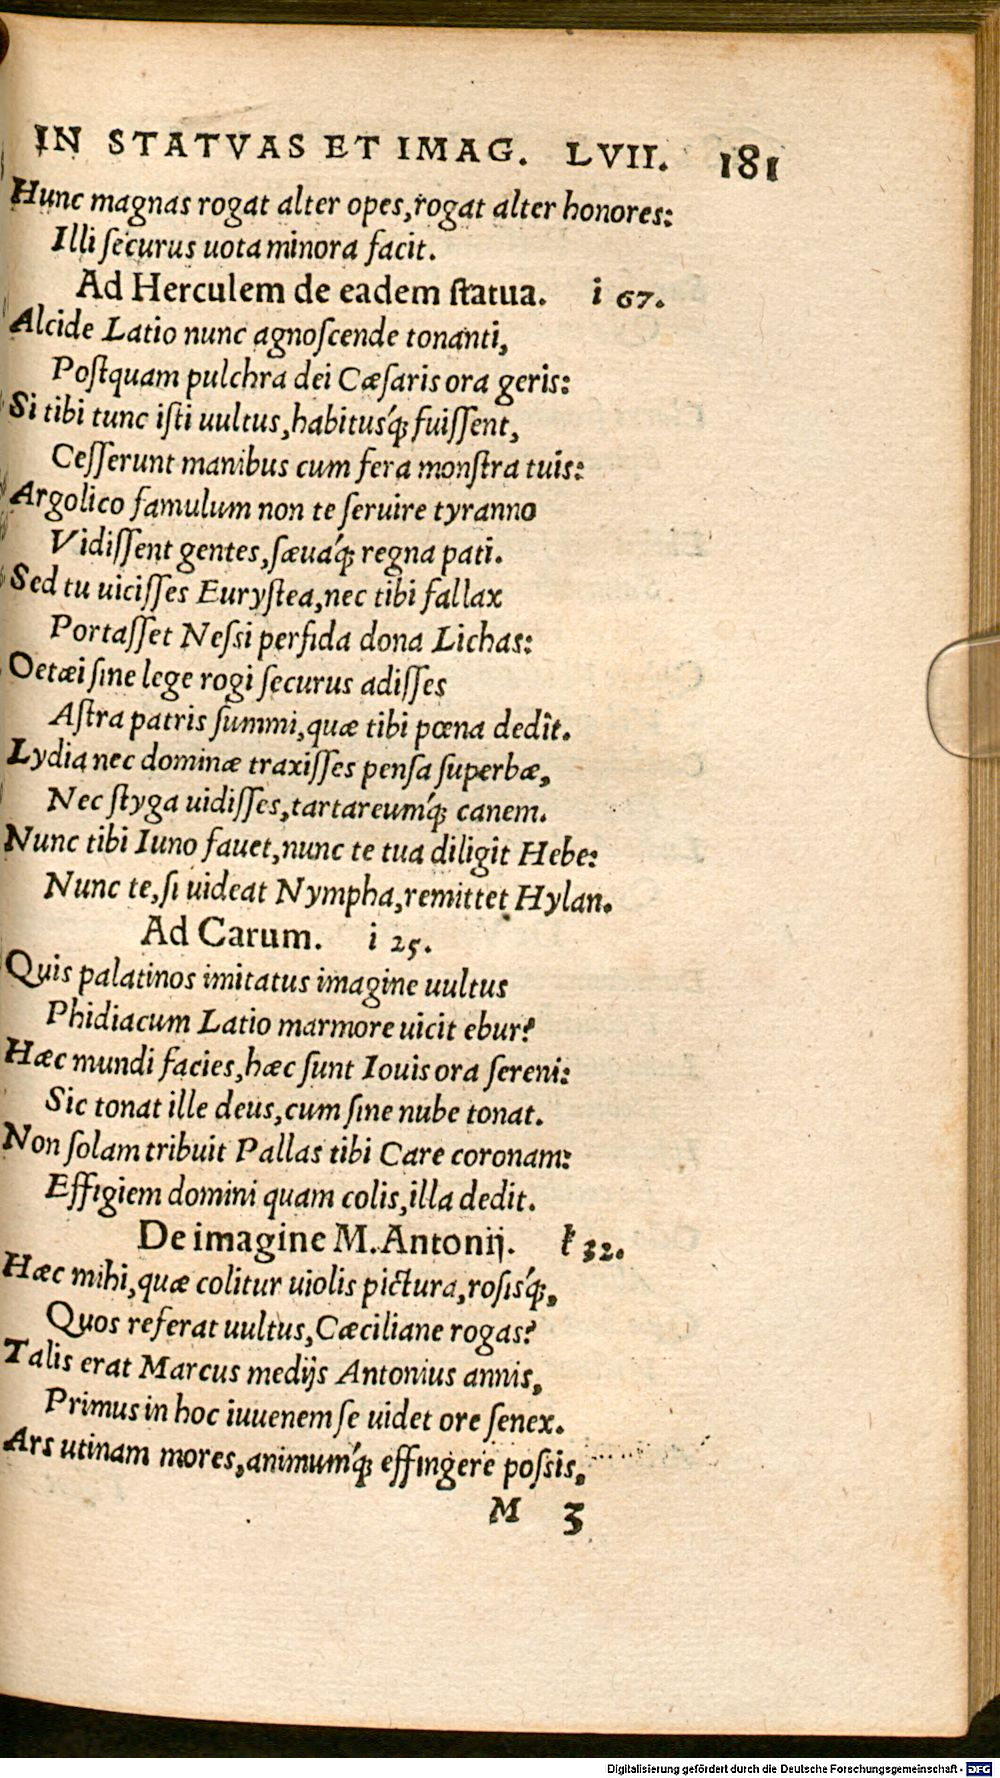 IN STATVAS ET IMAG. LVII. 181
Hunc magnas rogat alter opes, rogat alter honores:
Illi ſecurus uota minora facit.
Ad Herculem de eadem ſtatua. i 67.
Alcide Latio nunc agnoſcende tonanti,
Poſtquam pulchra dei Cæſaris ora geris:
Si tibi tunc iſti uultus, habitusq́; fuiſſent,
Ceſſerunt manibus cum fera monſtra tuis:
Argolico famulum non te ſeruire tyranno
Vidiſſent gentes, ſæuaq́; regna pati.
Sed tu uiciſſes Euryſtea, nec tibi fallax
Portaſſet Neſsi perfida dona Lichas:
Oetæi ſine lege rogi ſecurus adiſſes
Aſtra patris ſummi, quæ tibi pœna dedit.
Lydia nec dominæ traxiſſes penſa ſuperbæ,
Nec ſtyga uidiſſes, tartareumq́; canem.
Nunc tibi Iuno fauet, nunc te tua diligit Hebe:
Nunc te, ſi uideat Nympha, remittet Hylan.
Ad Carum. i 25.
Quis palatinos imitatus imagine uultus
Phidiacum Latio marmore uicit ebur?
Hæc mundi facies, hæc ſunt Iouis ora ſereni:
Sic tonat ille deus, cum ſine nube tonat.
Non ſolam tribuit Pallas tibi Care coronam:
Effigiem domini quam colis, illa dedit.
De imagine M. Antonij. k 32.
Hæc mihi, quæ colitur uiolis pictura, roſisq́;,
Quos referat uultus, Cæciliane rogas?
Talis erat Marcus medijs Antonius annis,
Primus in hoc iuuenem ſe uidet ore ſenex.
Ars utinam mores, animumq́; effingere poſsis,
M 3
Digitalisierung gefördert durch die Deutsche Forschungsgemeinschaft - DFG